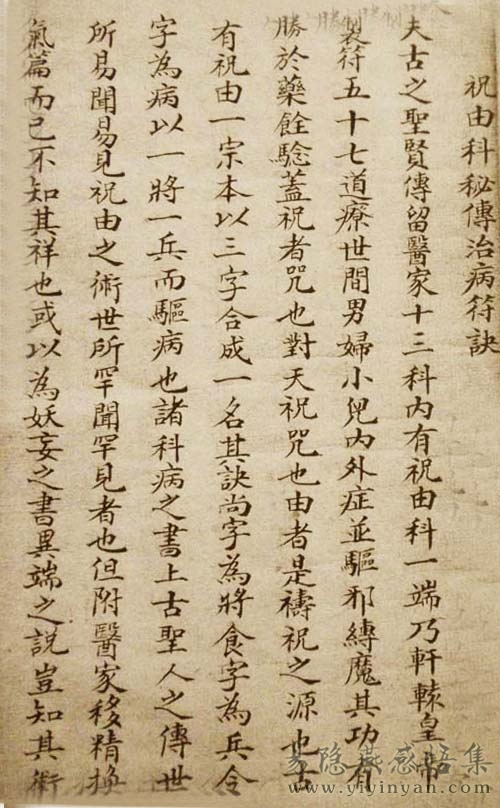 祝由科秘傳治病符訣
夫古之聖賢傳留醫家十三科內有祝由科一端乃軒轅皇帝
製符五十七道療世間男婦小兒內外症並驅邪縛魔其功有
勝於藥餌驗蓋祝者咒也對天祝咒也由者是禱祝之源也古
有祝由一宗本以三字合成一名其訣尚字為將食字為兵令
字為病以一將一兵而驅病也諸科病之書上古聖人之傳世
所易聞易見祝由之術世所罕聞罕見者也但附醫家移精換
氣篇而已不知其祥也或以為妖妄之書異端之說豈知其術
易隐燕感悟集
www.yiyinyan.com